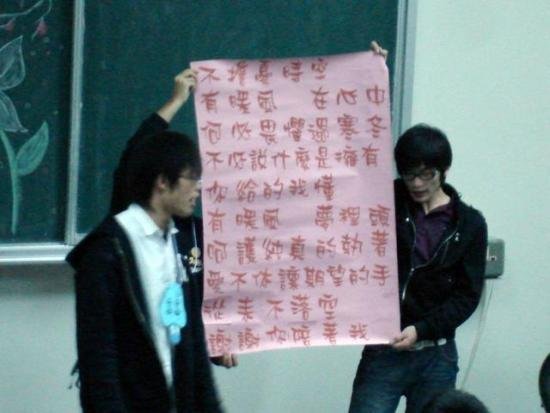 不擔憂時空
有暖風 在心中
何必畏懼過寒冬
不必說什麼是擁有
你給的我懂
有暖風 夢裡頭
呵護純真的執著
愛不休讓期望的手
從未不落空
謝謝你陪著我